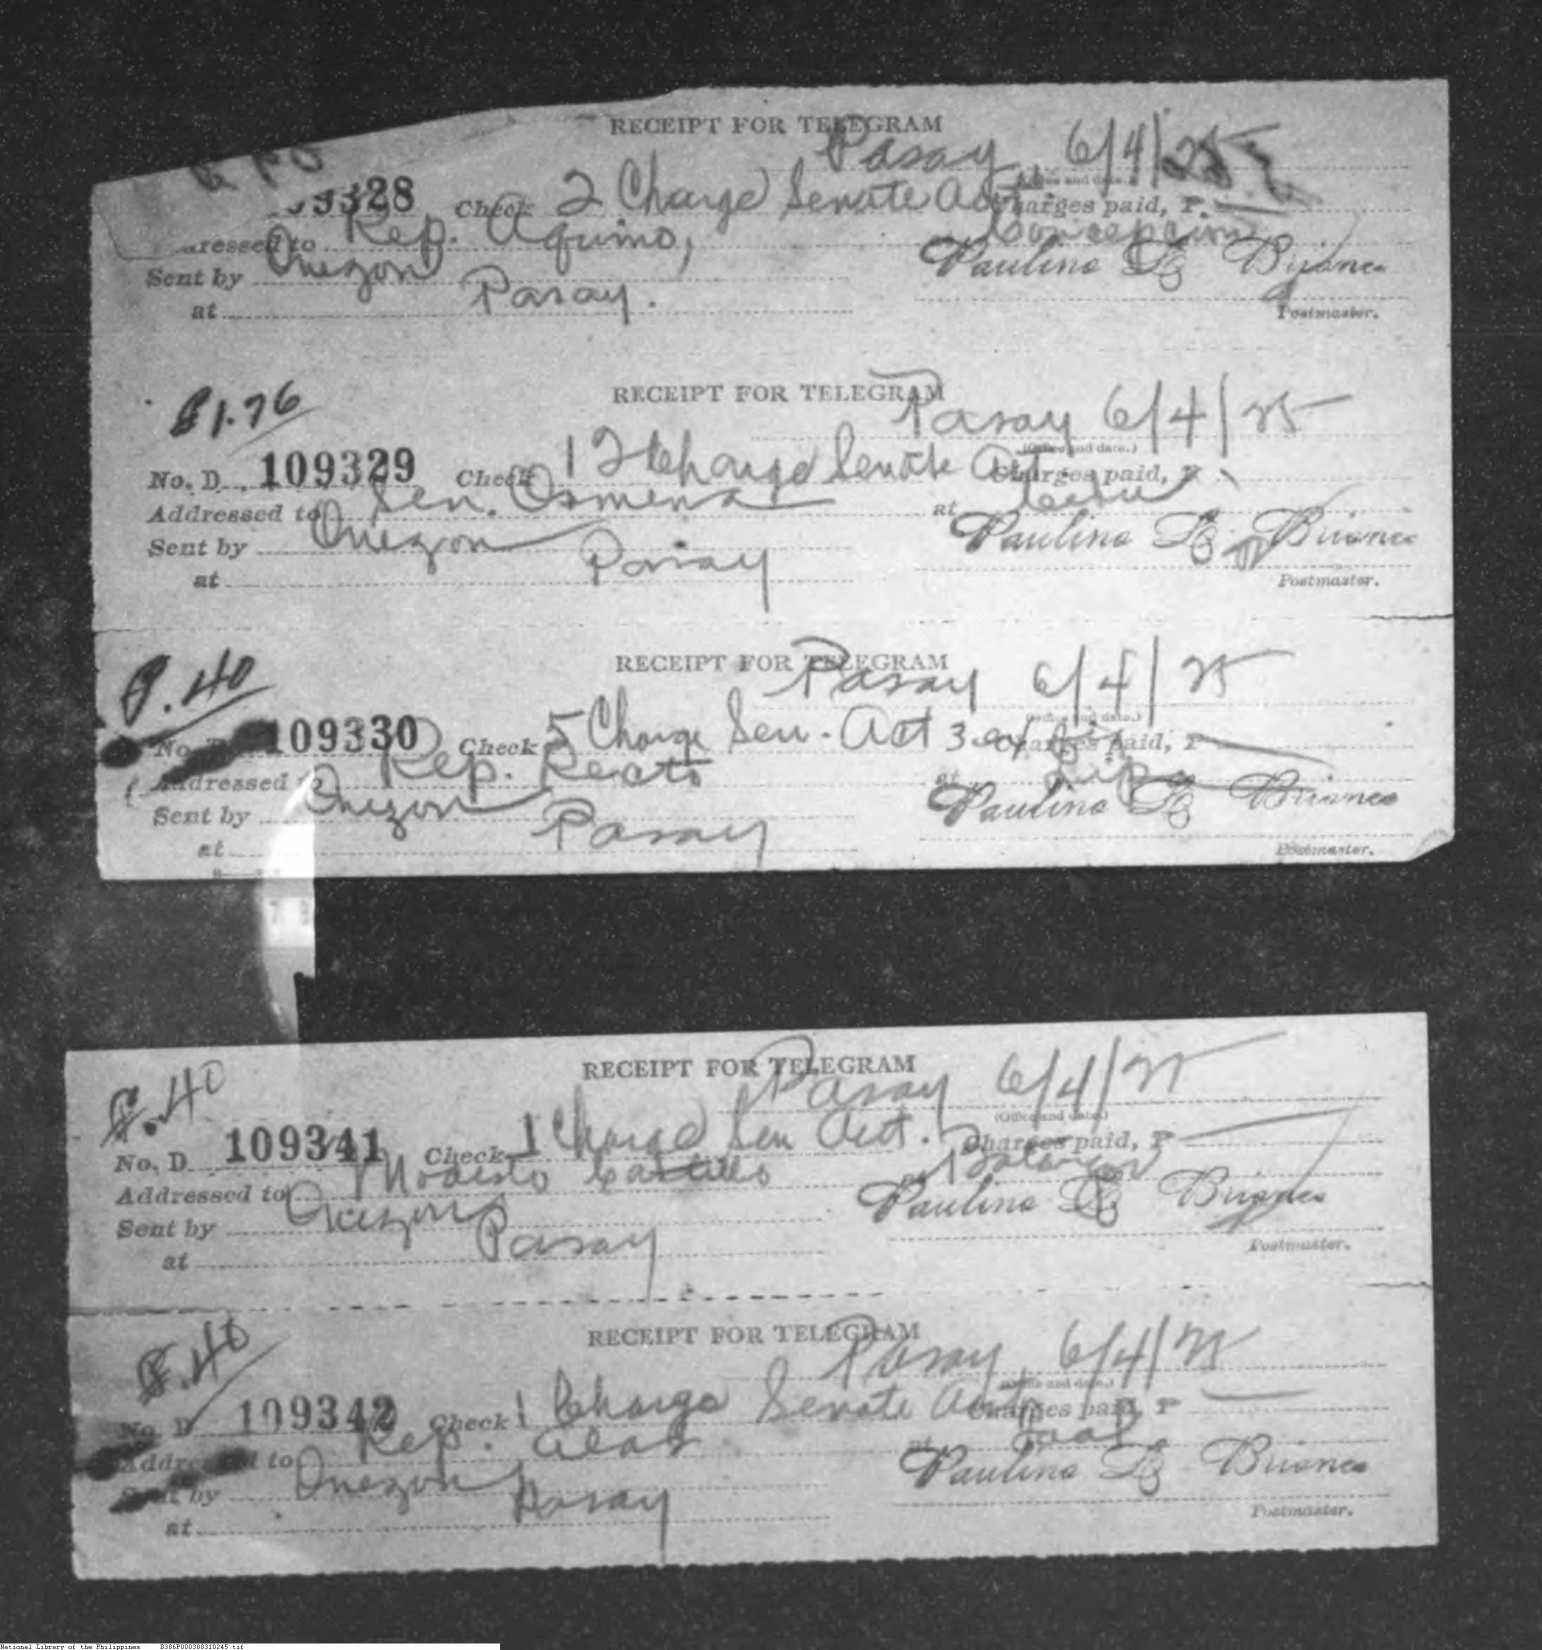 RECEIPT FOR TELEGRAM
Pasay, 6/4/25
(Office and date.)
09328 Check 2 Charge Senate Act Charges paid, P.
Addressed to Rep. Aquino, at Concepcion
Sent by Quezon Paulino G Briones
at Pasay.
Postmaster.
₱1.76
RECEIPT FOR TELEGRAM
Pasay 6/4/25
(Office and date.)
No. D 109329 Check 12 Charge Senate Act. Charges paid, P
Addressed to Sen. Osmena at Cebu
Sent by Quezon Paulino G Briones
at Pasay
Postmaster.
₱.40
RECEIPT FOR TELEGRAM
Pasay 6/4/25
(Office and date.)
No. D 109330 Check 5 Charge Sen. Act 3 Charges paid, P
Addressed to Rep. Recto at Lipa
Sent by Quezon Paulino G Briones
at Pasay
Postmaster.
₱.40
RECEIPT FOR TELEGRAM
Pasay 6/4/25
(Office and date.)
No. D 109341 Check 1 Charge Sen Act. Charges paid, P
Addressed to Modesto Castillo at
Sent by Quezon Paulino G Briones
at Pasay
Postmaster.
₱.40
RECEIPT FOR TELEGRAM
Pasay, 6/4/25
(Office and date.)
No. D 109342 Check 1 Charge Senate Act Charges paid, P
Addressed to Rep. Alas at Taal
Sent by Quezon Paulino G Briones
at Pasay
Postmaster.
National Library of the Philippines D386P000308310245.tif